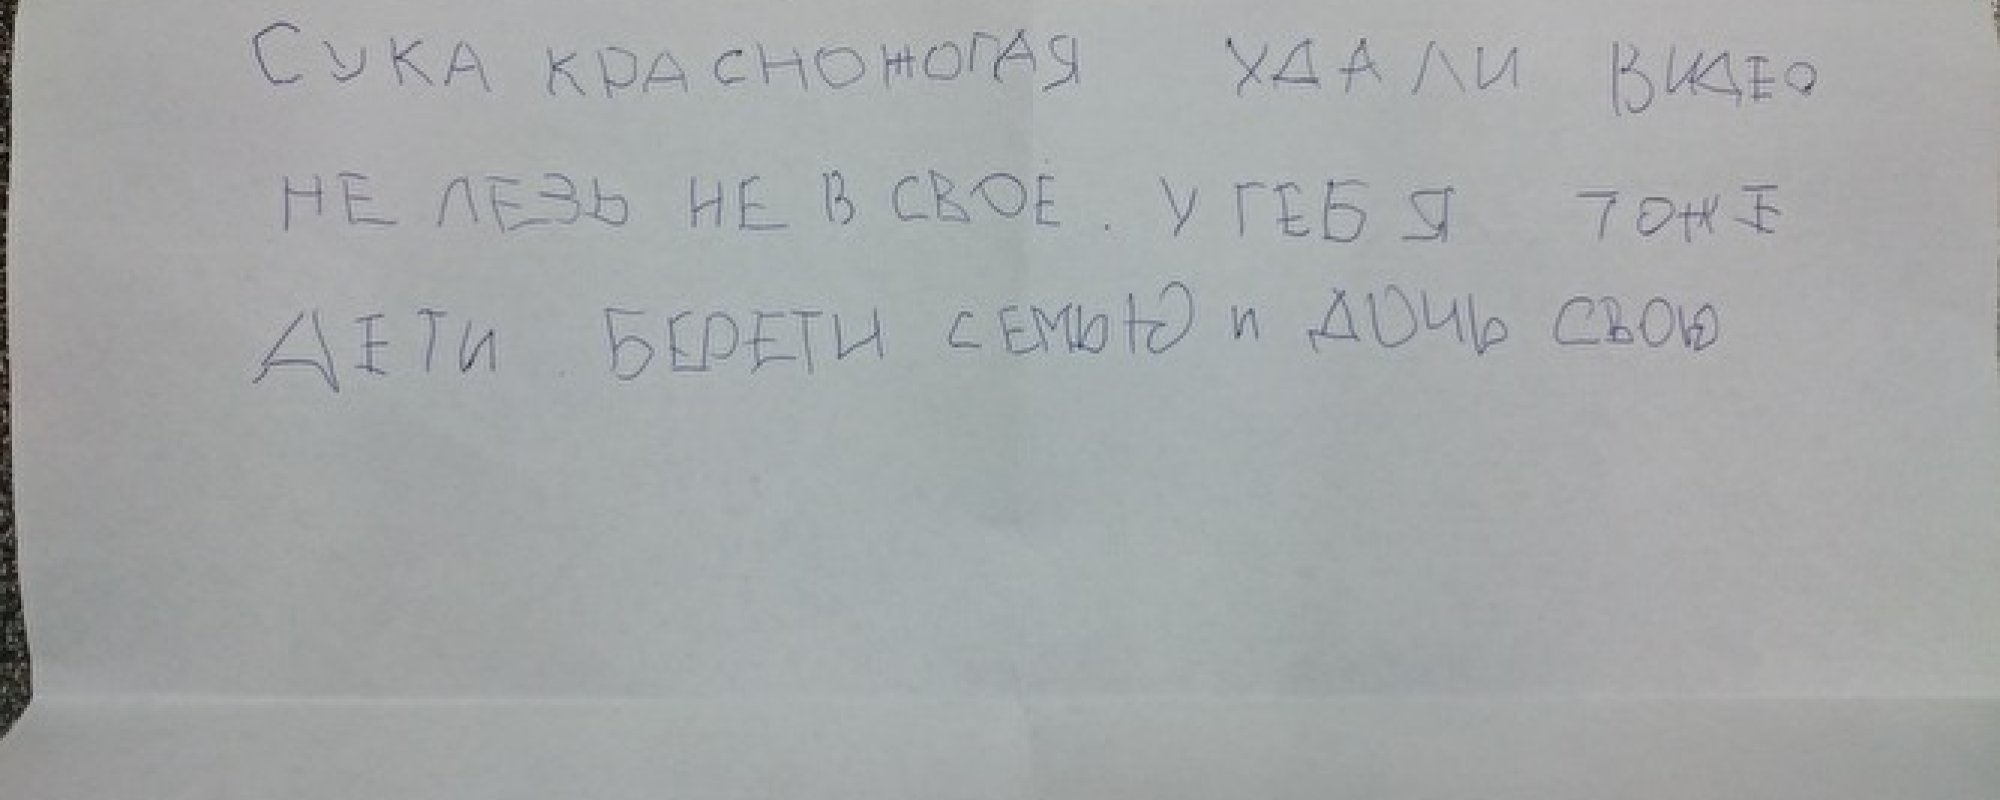 СУКА КРАСНОЖОГАЯ УДАЛИ ВИДЕО
НЕ ЛЕЗЬ НЕ В СВОЕ. У ТЕБЯ ТОЖЕ
ДЕТИ. БЕРЕТИ СЕМЬЮ И ДОЧЬ СВОЮ